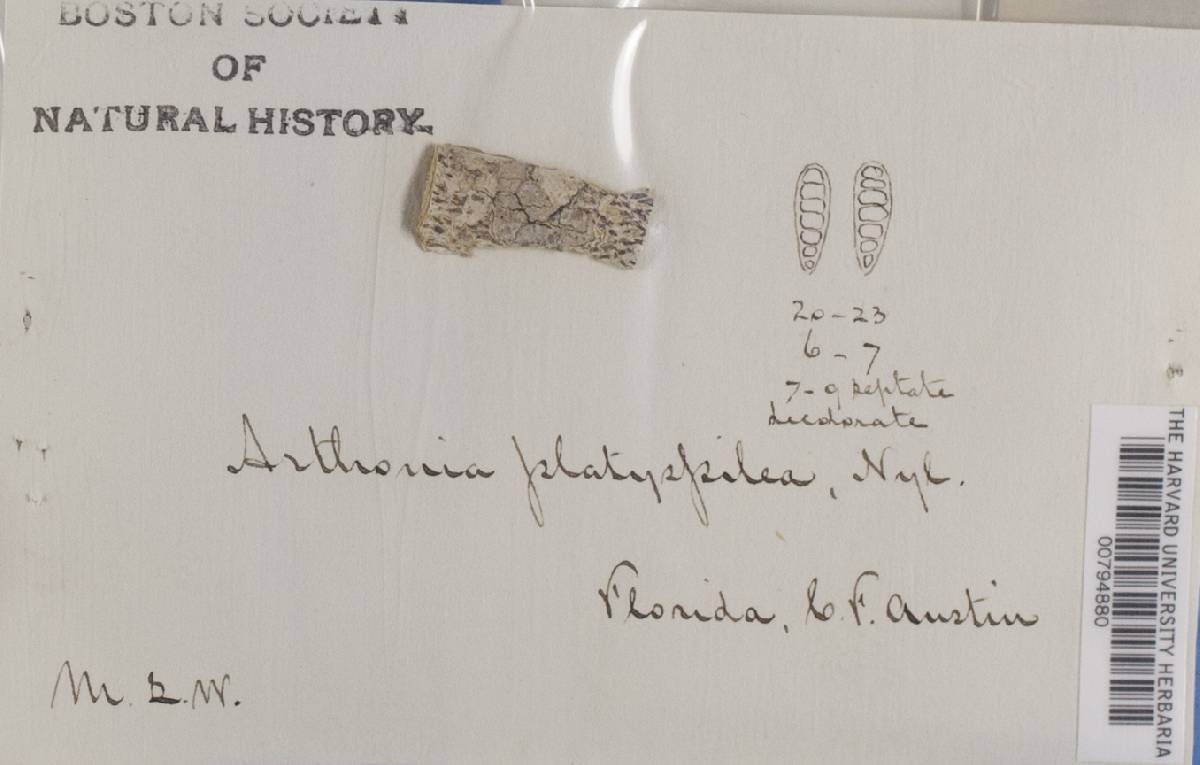 BOSTON SOCIETY
OF
NATURAL HISTORY.
20-23
6-7
7-9 septate
decolorate
Arthonia platyspilea, Nyl.
Florida, C.F. Austin
M.L.W.
THE HARVARD UNIVERSITY HERBARIA
00794880